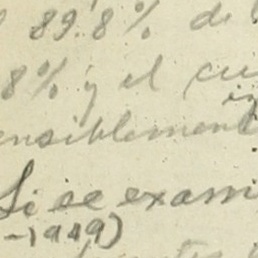 89.8% de
8% y el cu
ensiblement
Si se exami
-1949)